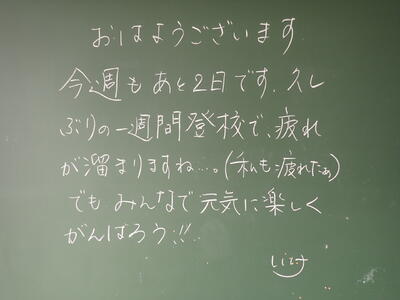 おはようございます
今週もあと2日です。久し
ぶりの一週間登校で、疲れ
が溜まりますね…。(私も疲れたぁ)
でもみんなで元気に楽しく
がんばろう!!